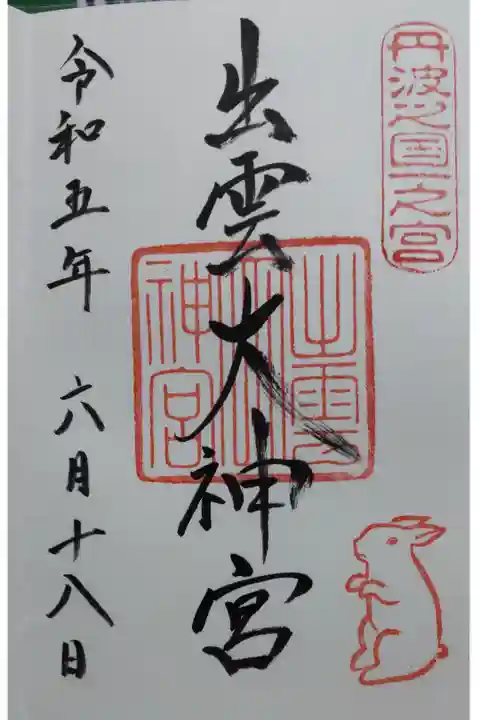 丹波之国一之宮
出雲大神宮
出雲大神宮
令和五年 六月十八日